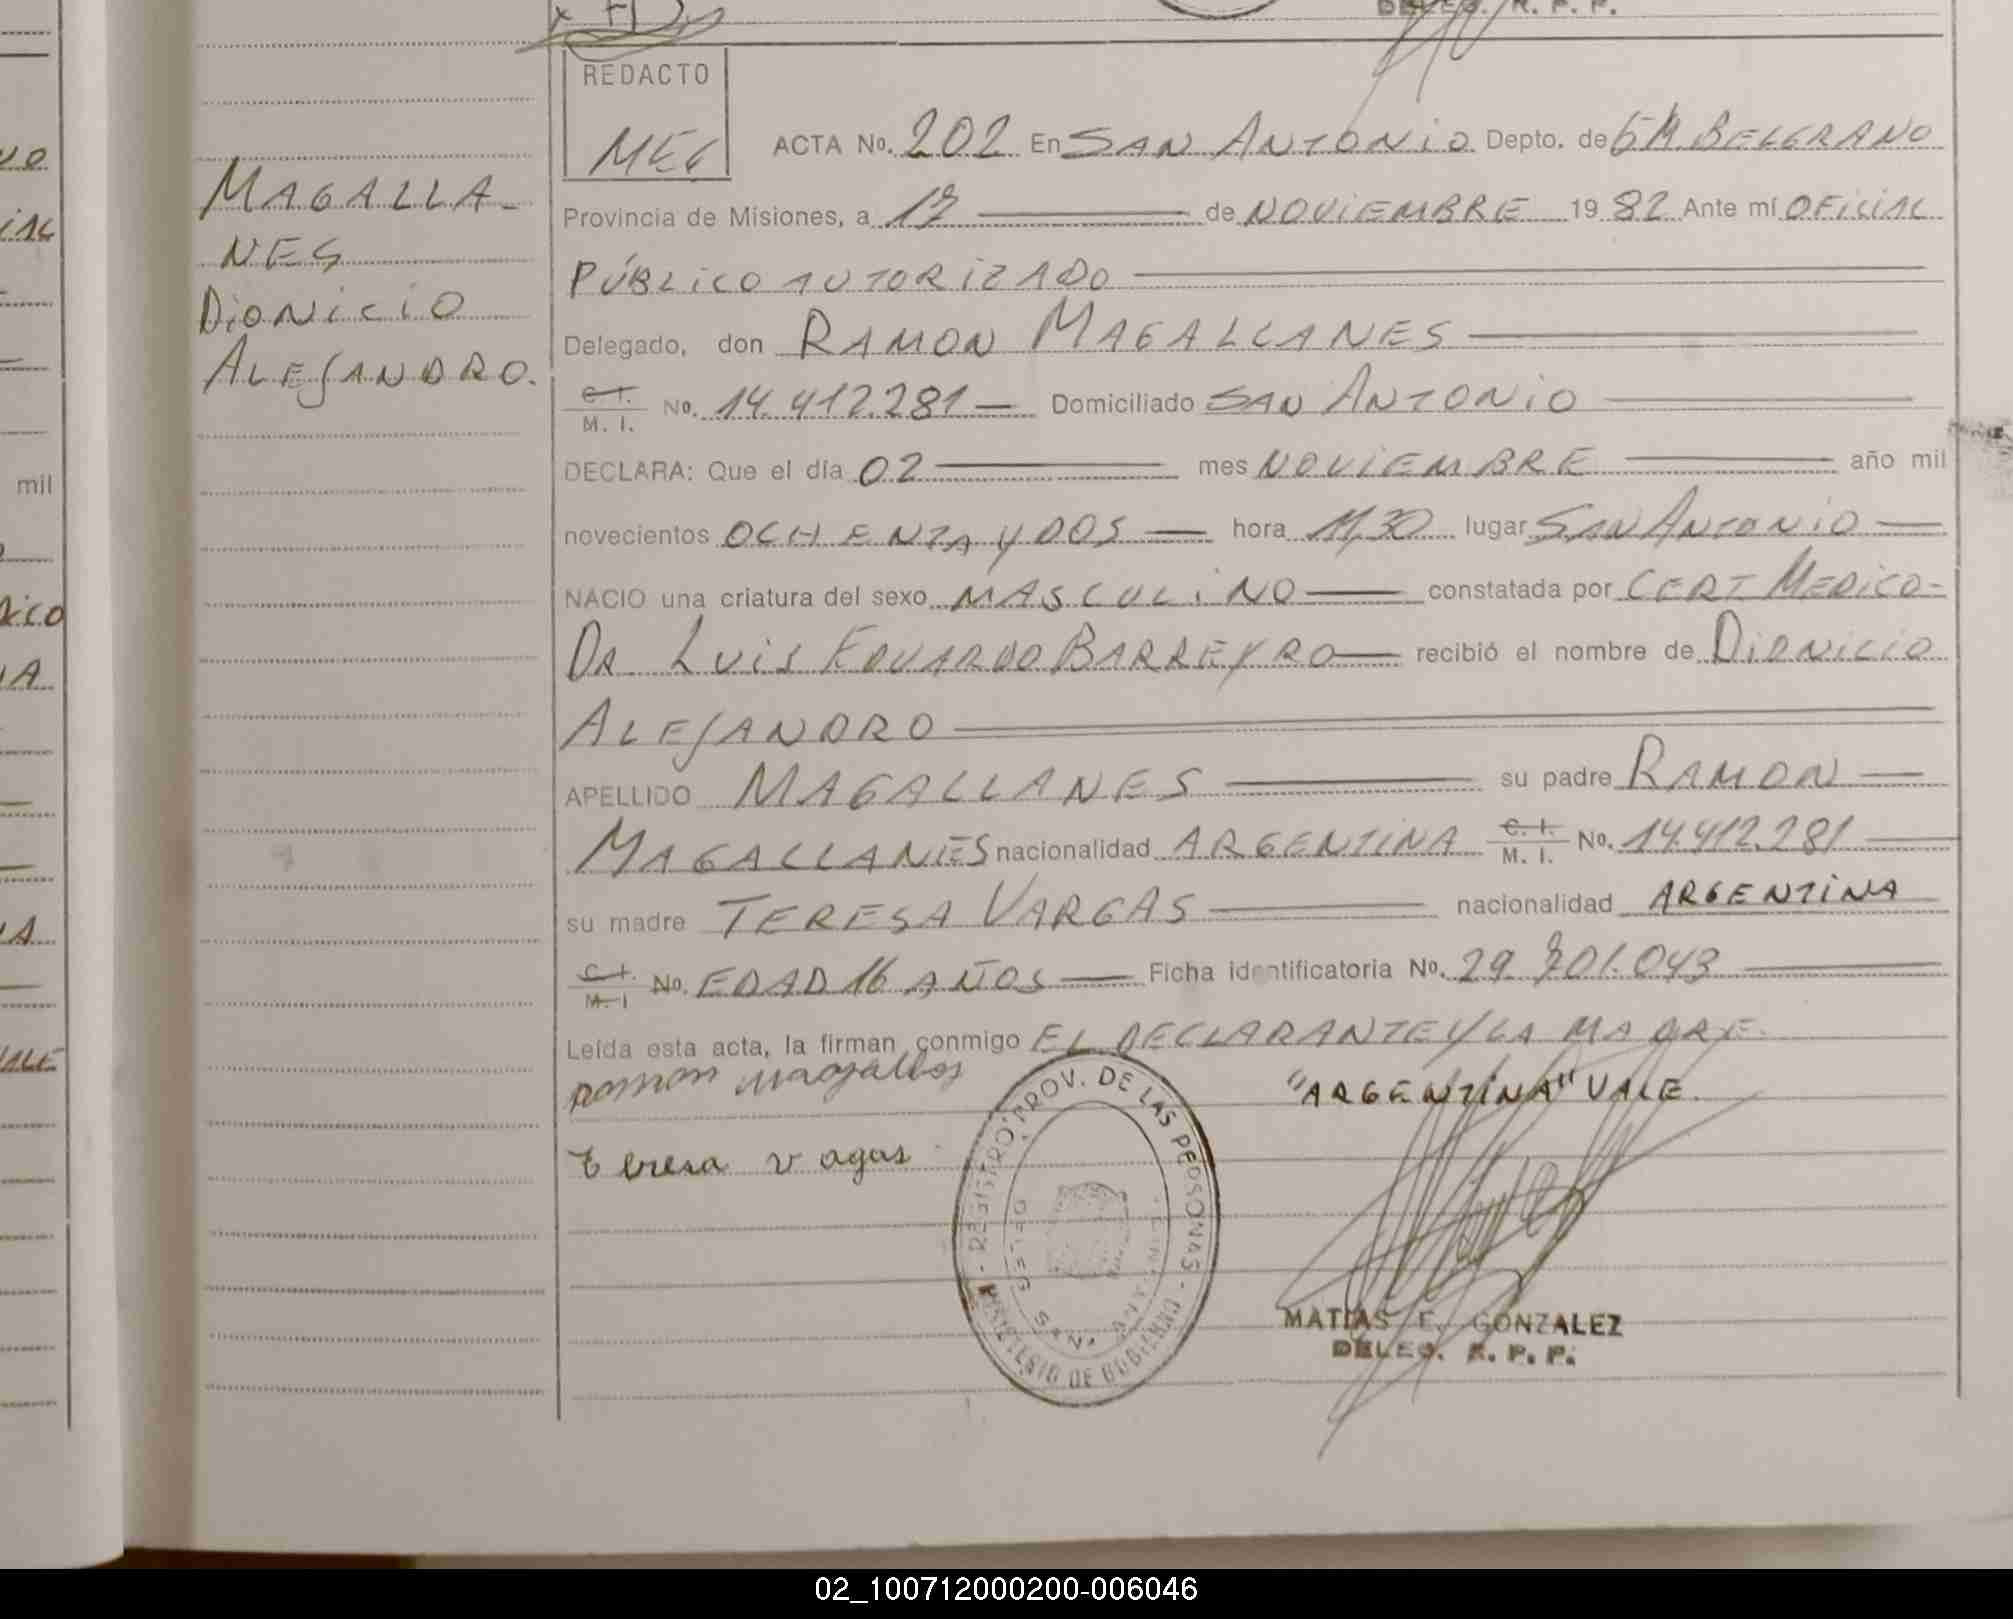 DELEG. R. P. P.
REDACTO
MEG
ACTA No. 202 En SAN ANTONIO Depto. de GM. BELGRANO
Provincia de Misiones, a 17 de NOVIEMBRE 1982 Ante mí OFICIAL
PÚBLICO AUTORIZADO
Delegado, don RAMON MAGALLANES
C. I. M. I. No. 14.412.281 Domiciliado SAN ANTONIO
DECLARA: Que el día 02 mes NOVIEMBRE año mil
novecientos OCHENTA Y DOS hora 11,30 lugar SAN ANTONIO
NACIO una criatura del sexo MASCULINO constatada por CERT MEDICO-
DR LUIS EDUARDO BARREYRO recibió el nombre de DIONICIO
ALEJANDRO
APELLIDO MAGALLANES su padre RAMON
MAGALLANES nacionalidad ARGENTINA C. I. M. I. No. 14.412.281
su madre TERESA VARGAS nacionalidad ARGENTINA
C. I. M. I No. EDAD 16 AÑOS Ficha identificatoria No. 29.701.043
Leída esta acta, la firman conmigo EL DECLARANTE Y LA MADRE.
"ARGENTINA" VALE.
Teresa vagas
REGISTRO PROV. DE LAS PERSONAS
MINISTERIO DE GOBIERNO
DELEG. SAN ANTONIO
MATIAS E. GONZALEZ
DELEG. R. P. P.
MAGALLA-
NES
DIONICIO
ALEJANDRO.
mil
02_100712000200-006046